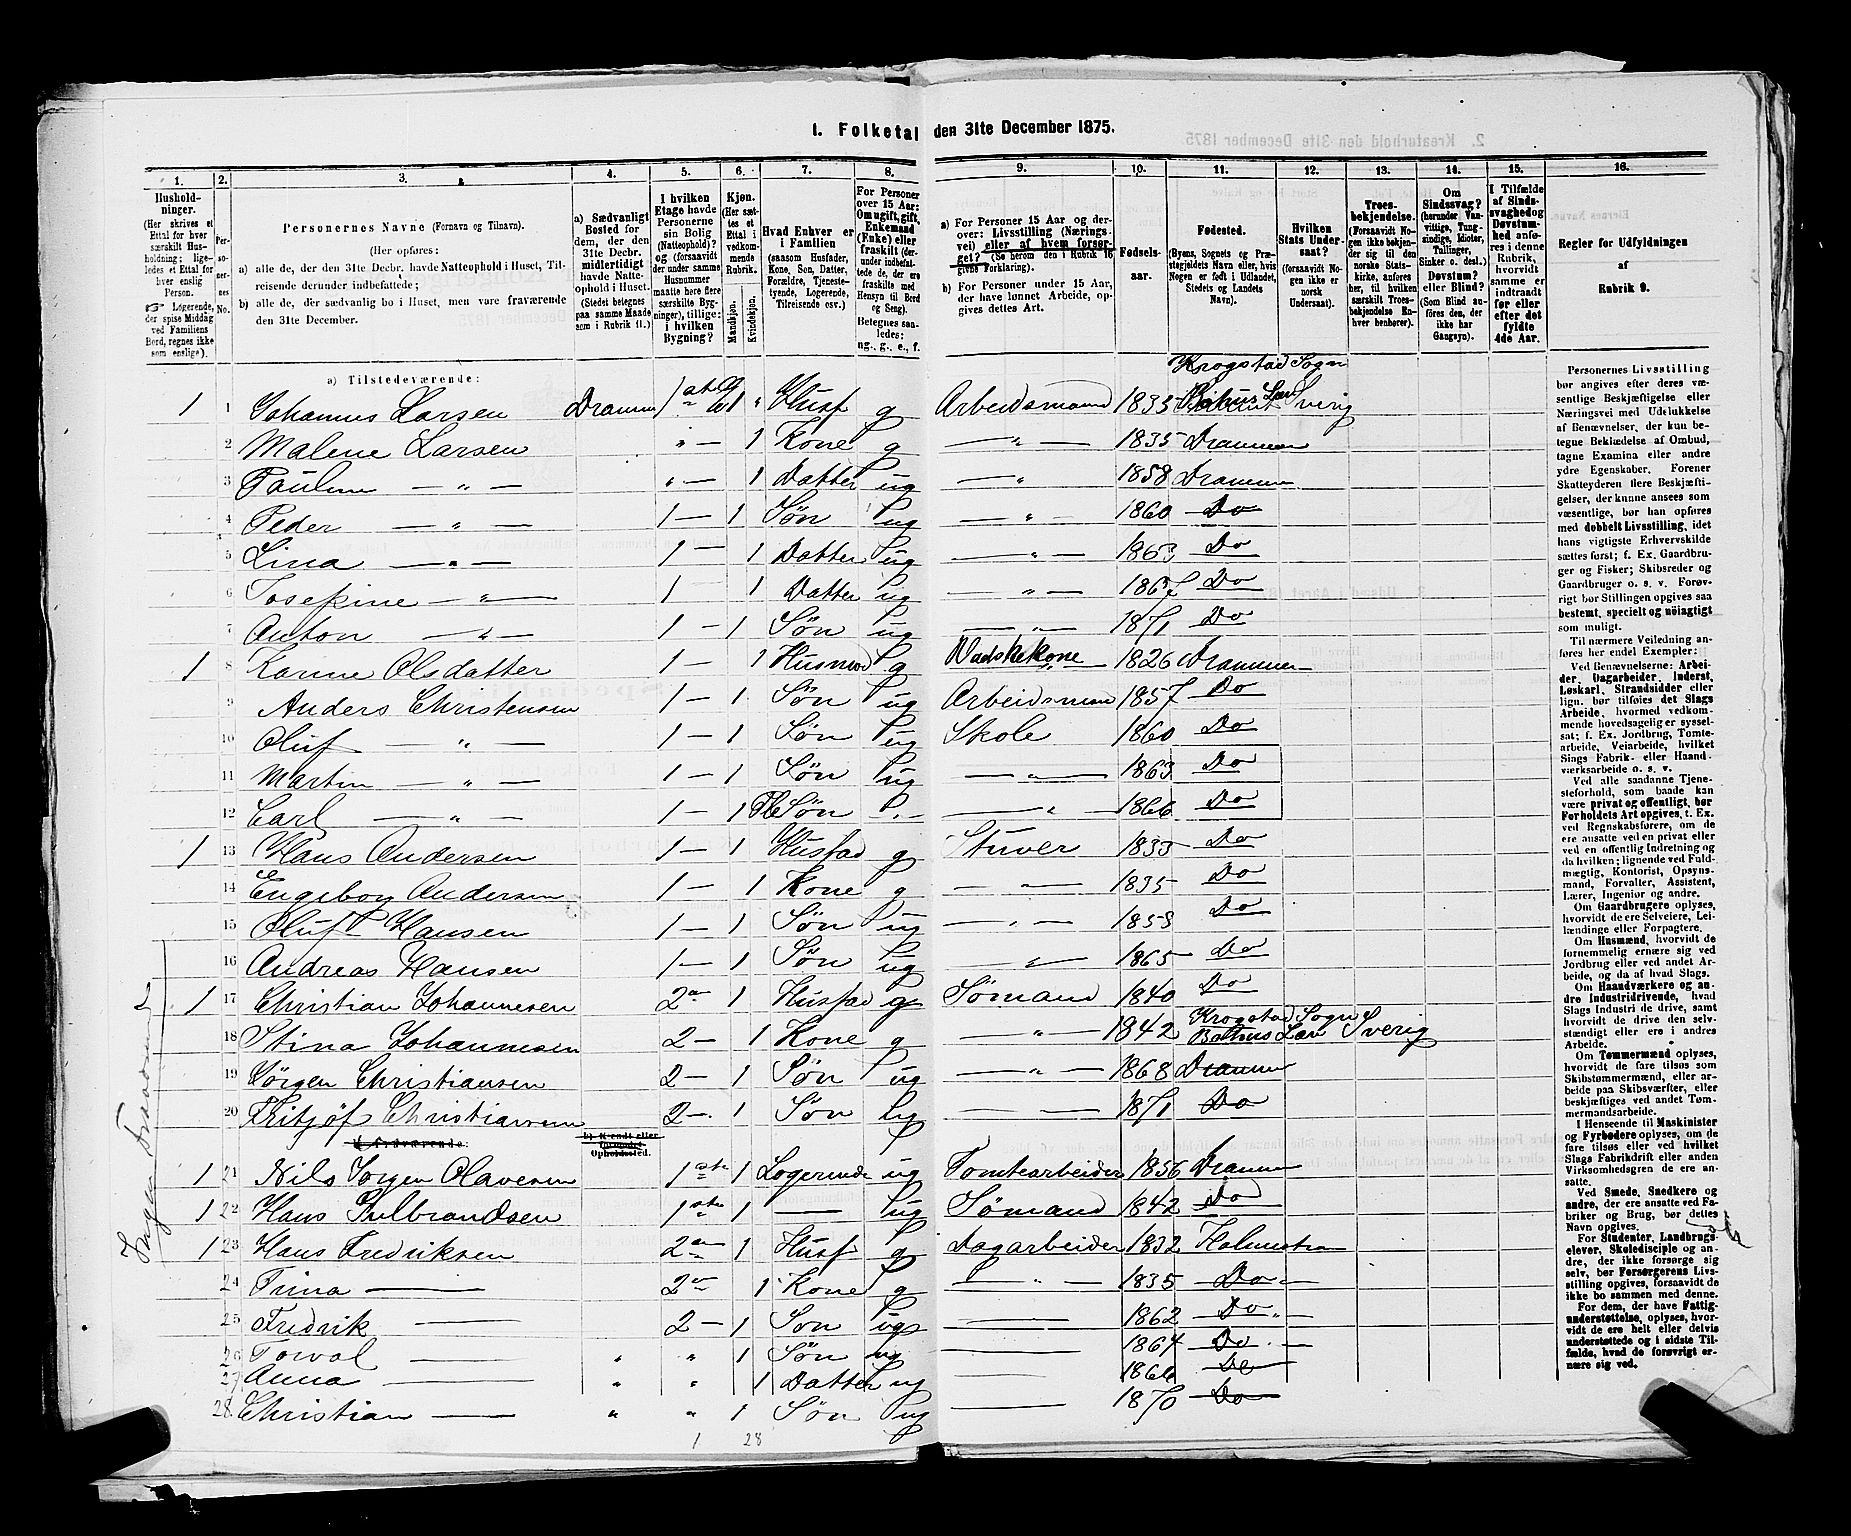 1. Folketal den 31te December 1875.
1. 2. 3. 4. 5. 6. 7. 8. 9. 10. 11. 12. 13. 14. 15. 16.
Husholdninger. (Her skrives et Ettal for hver særskilt Husholdning; ligeledes et Ettal for hver enslig Person. Logerende, der spise Middag ved Familiens Bord, regnes ikke som enslige).
Personernes No.
Personernes Navne (Fornavn og Tilnavn).
(Her opføres:
a) alle de, der den 31te Decbr. havde Natteophold i Huset, Tilreisende derunder indbefattede;
b) alle de, der sædvanlig bo i Huset, men vare fraværende den 31te December.
a) Sædvanligt Bosted for dem, der den 31te Decbr. midlertidigt havde Natteophold i Huset. (Stedet betegnes paa samme Maade som i Rubrik 11.)
I hvilken Etage havde Personerne sin Bolig (Natteophold)? og (forsaavidt der under samme Husnummer maatte høre flere særskilte Bygninger), tillige: i hvilken Bygning?
Kjøn. (Her sættes et Ettal i vedkommende Rubrik. Mandkjøn. Kvindekjøn.
Hvad Enhver er i Familien (saasom Husfader, Kone, Søn, Datter, Forældre, Tjenestetyende, Logerende, Tilreisende osv.)
For Personer over 15 Aar: Om ugift, gift, Enkemand (Enke) eller fraskilt (derunder indbefattede de, der ere fraskilte med Hensyn til Bord og Seng). Betegnes saaledes: ug., g., e., f.
a) For Personer 15 Aar og derover: Livsstilling (Næringsvei) eller af hvem forsørget? (Se herom den i Rubrik 16 givne Forklaring).
b) For Personer under 15 Aar, der have lønnet Arbeide, opgives dettes Art.
Fødselsaar.
Fødested. (Byens, Sognets og Præstegjeldets Navn eller, hvis Nogen er født i Udlandet, Stedets og Landets Navn).
Hvilken Stats Undersaat? (forsaavidt Nogen ikke er norsk Undersaat).
Troesbekjendelse. (Forsaavidt Nogen ikke bekjender sig til den norske Statskirke, anføres her, til hvilken særskilt Troesbekjendelse Enhver henhører).
Om Sindssvag? (herunder Vanvittige, Tungsindige, Idioter, Tullinger, Sinker o. desl.) Døvstum? eller Blind? (Som Blind anføres den, der ikke har Gangsyn).
I Tilfælde af Sindssvaghed og Døvstumhed anføres i denne Rubrik, hvorvidt samme er indtraadt før eller efter det fyldte 4de Aar.
Regler for Udfyldningen af Rubrik 9.
a) Tilstedeværende:
Krogstad Sogn
1 1 Johannes Larsen Drammen 1ste 1 " Husf g Arbeidsmand 1835 Bahus Len Sverig
2 Malene Larsen " — 1 Kone g — " — 1835 Drammen
3 Pauline — " — " — 1 Datter ug — " — 1858 Drammen
4 Peder — " — 1 — 1 Søn ug — " — 1860 Do
5 Lina — " — 1 — 1 Datter ug — " — 1863 Do
6 Josepine — " — 1 1 Datter ug — " — 1867 Do
7 Anton — " — 1 — 1 Søn ug — " — 1871 Do
1 8 Karine Olsdatter 1 — 1 Husmod g Vadskekone 1826 Drammen
9 Anders Christensen 1 — 1 Søn ug Arbeidsman 1857 Do
10 Oluf — " — 1 — 1 Søn ug Skole 1860 Do
11 Martin — " — 1 — 1 Søn ug — " — 1863 Do
12 Carl — " — 1 — 1 Søn — " — 1866 Do
1 13 Hans Andersen 1 — 1 Husfad g Stuver 1833 Do
14 Engebor Andersen 1 — 1 Kone g — " — 1835 Do
15 Oluf Hansen 1 — 1 Søn ug — " — 1853 Do
16 Andreas Hansen 1 — 1 Søn ug — " — 1865 Do
1 17 Christian Johannesen 2 1 Husfad g Sømand 1840 Do
18 Stina Johannesen 2 — 1 Kone g — " — 1842 Krogstad Sogn Bahus Len Sverig
19 Jørgen Christiansen 2 — 1 Søn ug — " — 1868 Drammen
20 Fritjöf Christiansen 2 — 1 Søn ug 1871 Do
b) Fraværende: b) Kjendt eller formodet Opholdssted.
1 21 Nils Jörgen Olavesen 1ste 1 Logerende ug Tomtearbeider 1856 Drammen
1 22 Hans Gulbrandsen 1ste 1 — ug Sømand 1842 Do
1 23 Hans Fredriksen 2 1 Husf g Dagarbeider 1832 Holmestran
24 Trina — 2 1 Kone g — " — 1835 Do
25 Fredrik — 2 — 1 Søn ug — 1862 Do
26 Torval — " " 1 Søn ug — 1864 Do
27 Anna — " " 1 Datter ug — 1866 Do
28 Christian — " " 1 Søn ug — 1870 Do
1 28
Ingen Fraværende
Personernes Livsstilling bør angives efter deres væsentlige Beskjæftigelse eller Næringsvei med Udelukkelse af Benævnelser, der kun betegne Beklædelse af Ombud, tagne Examina eller andre ydre Egenskaber. Forener Skatteyderen flere Beskjæftigelser, der kunne ansees som væsentlige, bør han opføres med dobbelt Livsstilling, idet hans vigtigste Erhvervskilde sættes først; f. Ex. Gaardbruger og Fisker; Skibsreder og Gaardbruger o. s. v. Forøvrigt bør Stillingen opgives saa bestemt, specielt og nöiagtigt som muligt.
Til nærmere Veiledning anføres her endel Exempler:
Ved Benævnelserne: Arbeider, Dagarbeider, Inderst, Løskarl, Strandsidder eller lign. bør tilføies det Slags Arbeide, hvormed vedkommende hovedsagelig er sysselsat; f. Ex. Jordbrug, Tomtearbeide, Veiarbeide, hvilket Slags Fabrik- eller Haandværksarbeide o. s. v.
Ved alle saadanne Tjenesteforhold, som baade kan være privat og offentligt, bør Forholdets Art opgives, t. Ex. ved Regnskabsførere, om de ere ansatte ved en privat eller ved en offentlig Indretning og da hvilken; lignende ved Fuldmægtig, Kontorist, Opsynsmand, Forvalter, Assistent, Lærer, Ingeniør og andre.
Om Gaardbrugere oplyses, hvorvidt de ere Selveiere, Leilændinge eller Forpagtere.
Om Husmænd, hvorvidt de fornemmelig ernære sig ved Jordbrug eller ved andet Arbeide, og da af hvad Slags.
Om Haandværkere og andre Industridrivende, hvad Slags Industri de drive, samt hvorvidt de drive den selvstændigt eller ere i andres Arbeide.
Om Tømmermænd oplyses, hvorvidt de fare tilsøs som Skibstømmermænd, eller arbeide paa Skibsværfter, eller beskjæftiges ved andet Tømmermandsarbeide.
I Henseende til Maskinister og Fyrbødere oplyses, om de fare tilsøs eller ved hvilket Slags Fabrikdrift eller anden Virksomhedsgren de ere ansatte.
Ved Smede, Snedkere og andre, der ere ansatte ved Fabriker og Brug, bør dettes Navn opgives.
For Studenter, Landbrugselever, Skoledisciple og andre, der ikke forsørge sig selv, bør Forsørgerens Livsstilling opgives, forsaavidt de ikke bo sammen med denne.
For dem, der have Fattigunderstøttelse, oplyses, hvorvidt de ere helt eller delvis understøttede og i sidste Tilfælde, hvad de forøvrigt ernære sig ved.